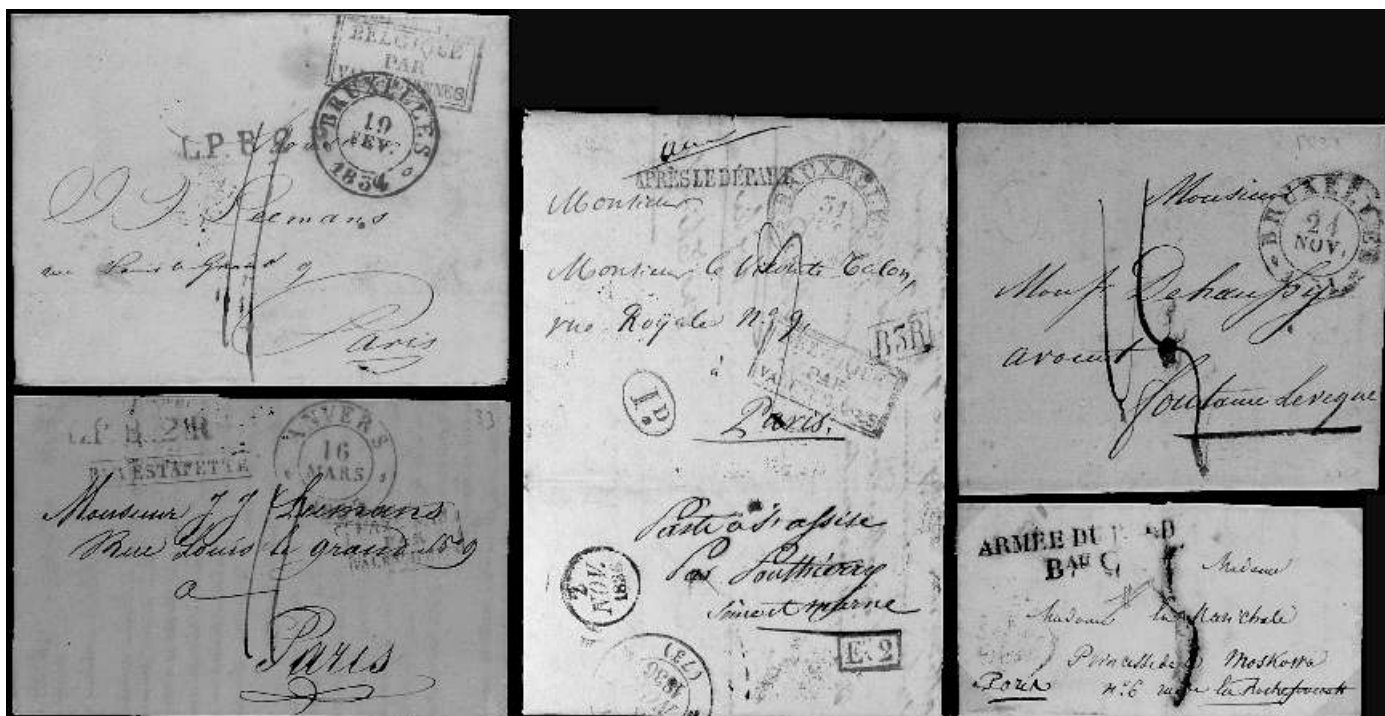 BELGIQUE
PAR
BRUXELLES
19
FEV.
1834
L.P.B.2.R
J J Leemans
rue Louis le Grand 9
Paris
L.P.B.2.R
PAR ESTAFETTE
ANVERS
16
MARS
33
Monsieur J J Leemans
Rue Louis le grand No 9
a
Paris
APRÈS LE DÉPART
BRUXELLES
31
Monsieur
Monsieur le Vicomte Talon,
rue Royale No 9,
à
Paris.
B3R
BELGIQUE
PAR
VALENCIENNES
1D.
Passé à
Par Ponthierry
Seine et marne
2
NOV.
1836
(73)
1836
E.2
BRUXELLES
21
NOV.
Monsieur
Monsr
avocat
fontaine Leveque
ARMÉE DU NORD
BAU G
Madame
Madame la Maréchale
Princesse de la Moskowa
Paris
n° 6 rue de la Rochefoucault